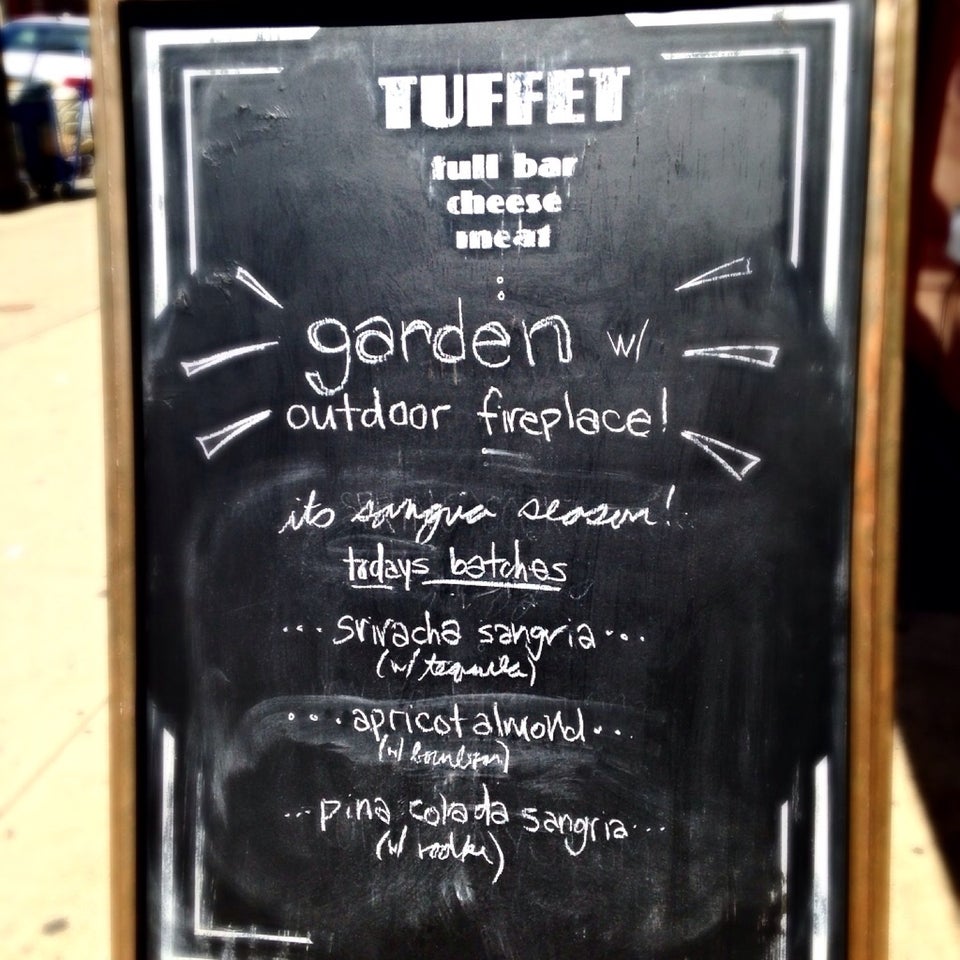 TUFFET
full bar
cheese
meat
garden w/
outdoor fireplace!
its sangria season!
todays batches
...sriracha sangria...
(w/ tequila)
...apricot almond...
(w/ bourbon)
...pina colada sangria...
(w/ vodka)